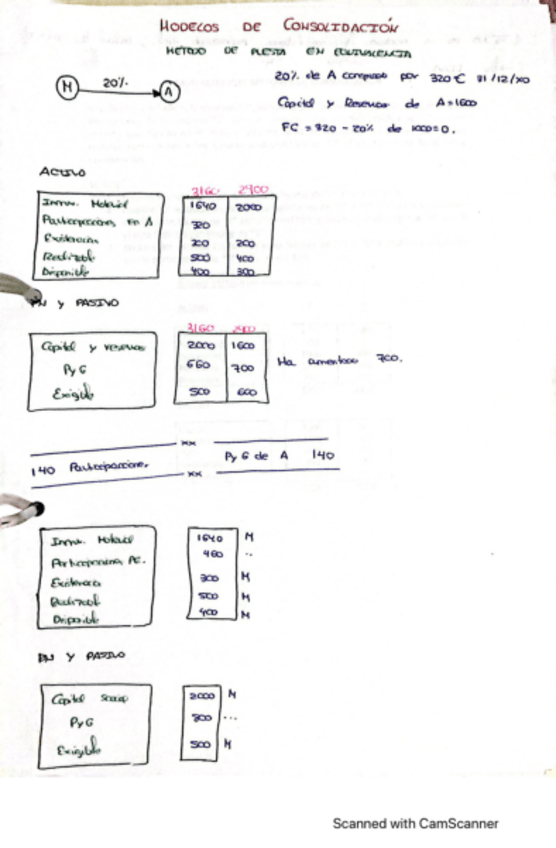 MODELOS DE CONSOLIDACIÓN
METODO DE PUESTA EN EQUIVALENCIA
M 20% A
20% de A comprado por 320 € 31/12/x0
Capital y Reservas de A = 1600
FC = 320 - 20% de 1600 = 0.
ACTIVO
3160 2900
Inmv. Material 1640 2000
Participaciones en A 320
Existencias 300 200
Realizable 500 400
Disponible 400 300
PN y PASIVO
3160 2900
Capital y reservas 2000 1600
PyG 660 700 Ha aumentado 700.
Exigible 500 600
xx
140 Participaciones PyG de A 140
xx
Inmv. Material 1640 M
Participaciones PE. 460 ..
Existencias 300 M
Realizable 500 M
Disponible 400 M
PN y PASIVO
Capital social 2000 M
PyG 800 ...
Exigible 500 M
Scanned with CamScanner